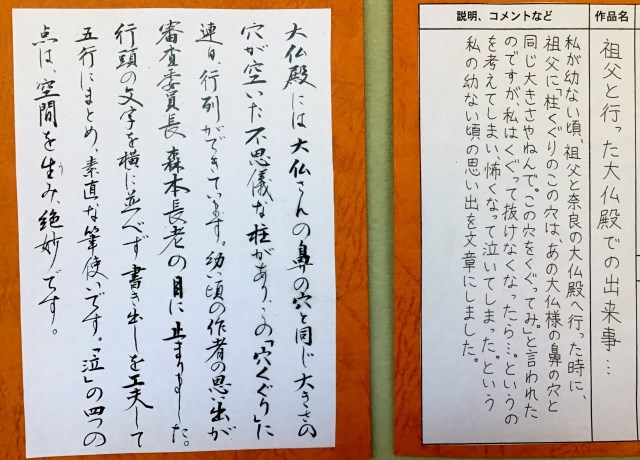 作品名
祖父と行った大仏殿での出来事…
説明、コメントなど
私が幼ない頃、祖父と奈良の大仏殿へ行った時に、
祖父に「柱くぐりのこの穴は、あの大仏様の鼻の穴と
同じ大きさやねんで。この穴をくぐってみ」と言われた
のですが、私はくぐって抜けなくなったら…。というの
を考えてしまい、怖くなって泣いてしまった。という
私の幼ない頃の思い出を文章にしました。
大仏殿には大仏さんの鼻の穴と同じ大きさの
穴が空いた不思儀な柱があり、この「穴くぐり」に
連日、行列ができています。幼い頃の作者の思い出が
審査委員長 森本長老の目に止まりました。
行頭の文字を横に並べず書き出しを工夫して
五行にまとめ、素直な筆使いです。「泣」の四つの
点は、空間を生み、絶妙です。
う